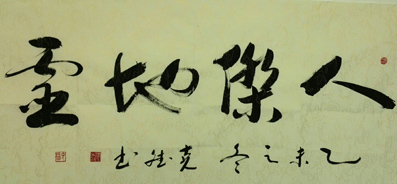 人傑地靈
乙未之冬 堯 書